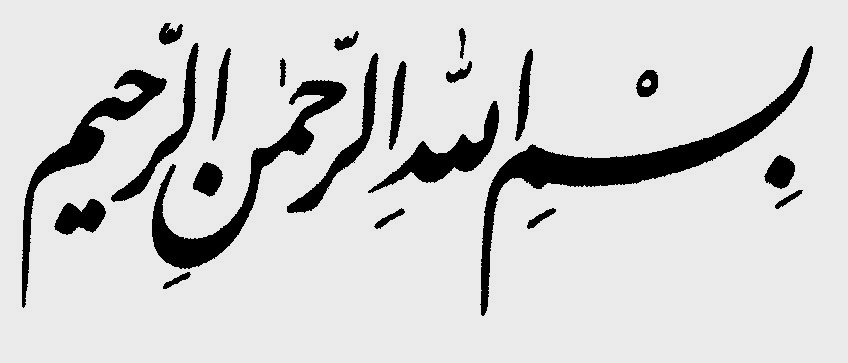 بِسْمِ اللّٰهِ الرَّحْمٰنِ الرَّحیم